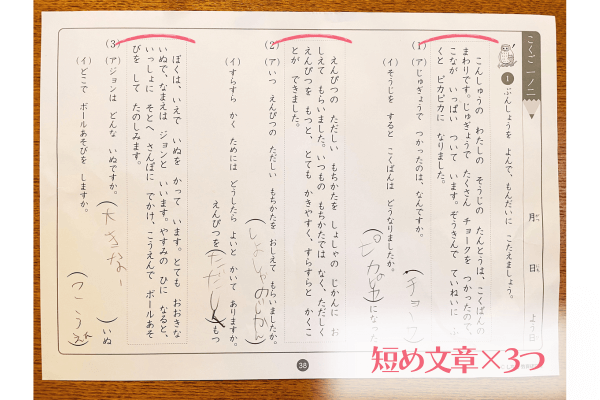 こくご 一ノ二
月 日 よう日
1 ぶんしょうを よんで、もんだいに こたえましょう。
(1)
こんしゅうの わたしの そうじの たんとうは、こくばんの
まわりです。じゅぎょうで たくさん チョークを つかったので、
こなが いっぱい ついて います。ぞうきんで ていねいに ふ
くと ピカピカに なりました。
(ア) じゅぎょうで つかったのは、なんですか。
(チョーク)
(イ) そうじを すると こくばんは どうなりましたか。
になった
(2)
えんぴつの ただしい もちかたを しょしゃの じかんに お
しえて もらいました。いつもの もちかたでは なく、ただしく
えんぴつを もつと、とても かきやすく、すらすらと かくこ
とが できました。
(ア) いつ えんぴつの ただしい もちかたを おしえて もらいましたか。
(しょしゃのじかん)
(イ) すらすら かく ためには どうしたら よいと かいて ありますか。
えんぴつを(ただしく)もつ
(3)
ぼくは、いえで いぬを かって います。とても おおきな
いぬで、なまえは ジョンと いいます。やすみの ひに なると、
いっしょに そとへ さんぽに でかけ、こうえんで ボールあそ
びを して たのしみます。
(ア) ジョンは どんな いぬですか。
(大きな)いぬ
(イ) どこで ボールあそびを しますか。
(こうえん)
38
短め文章×3つ